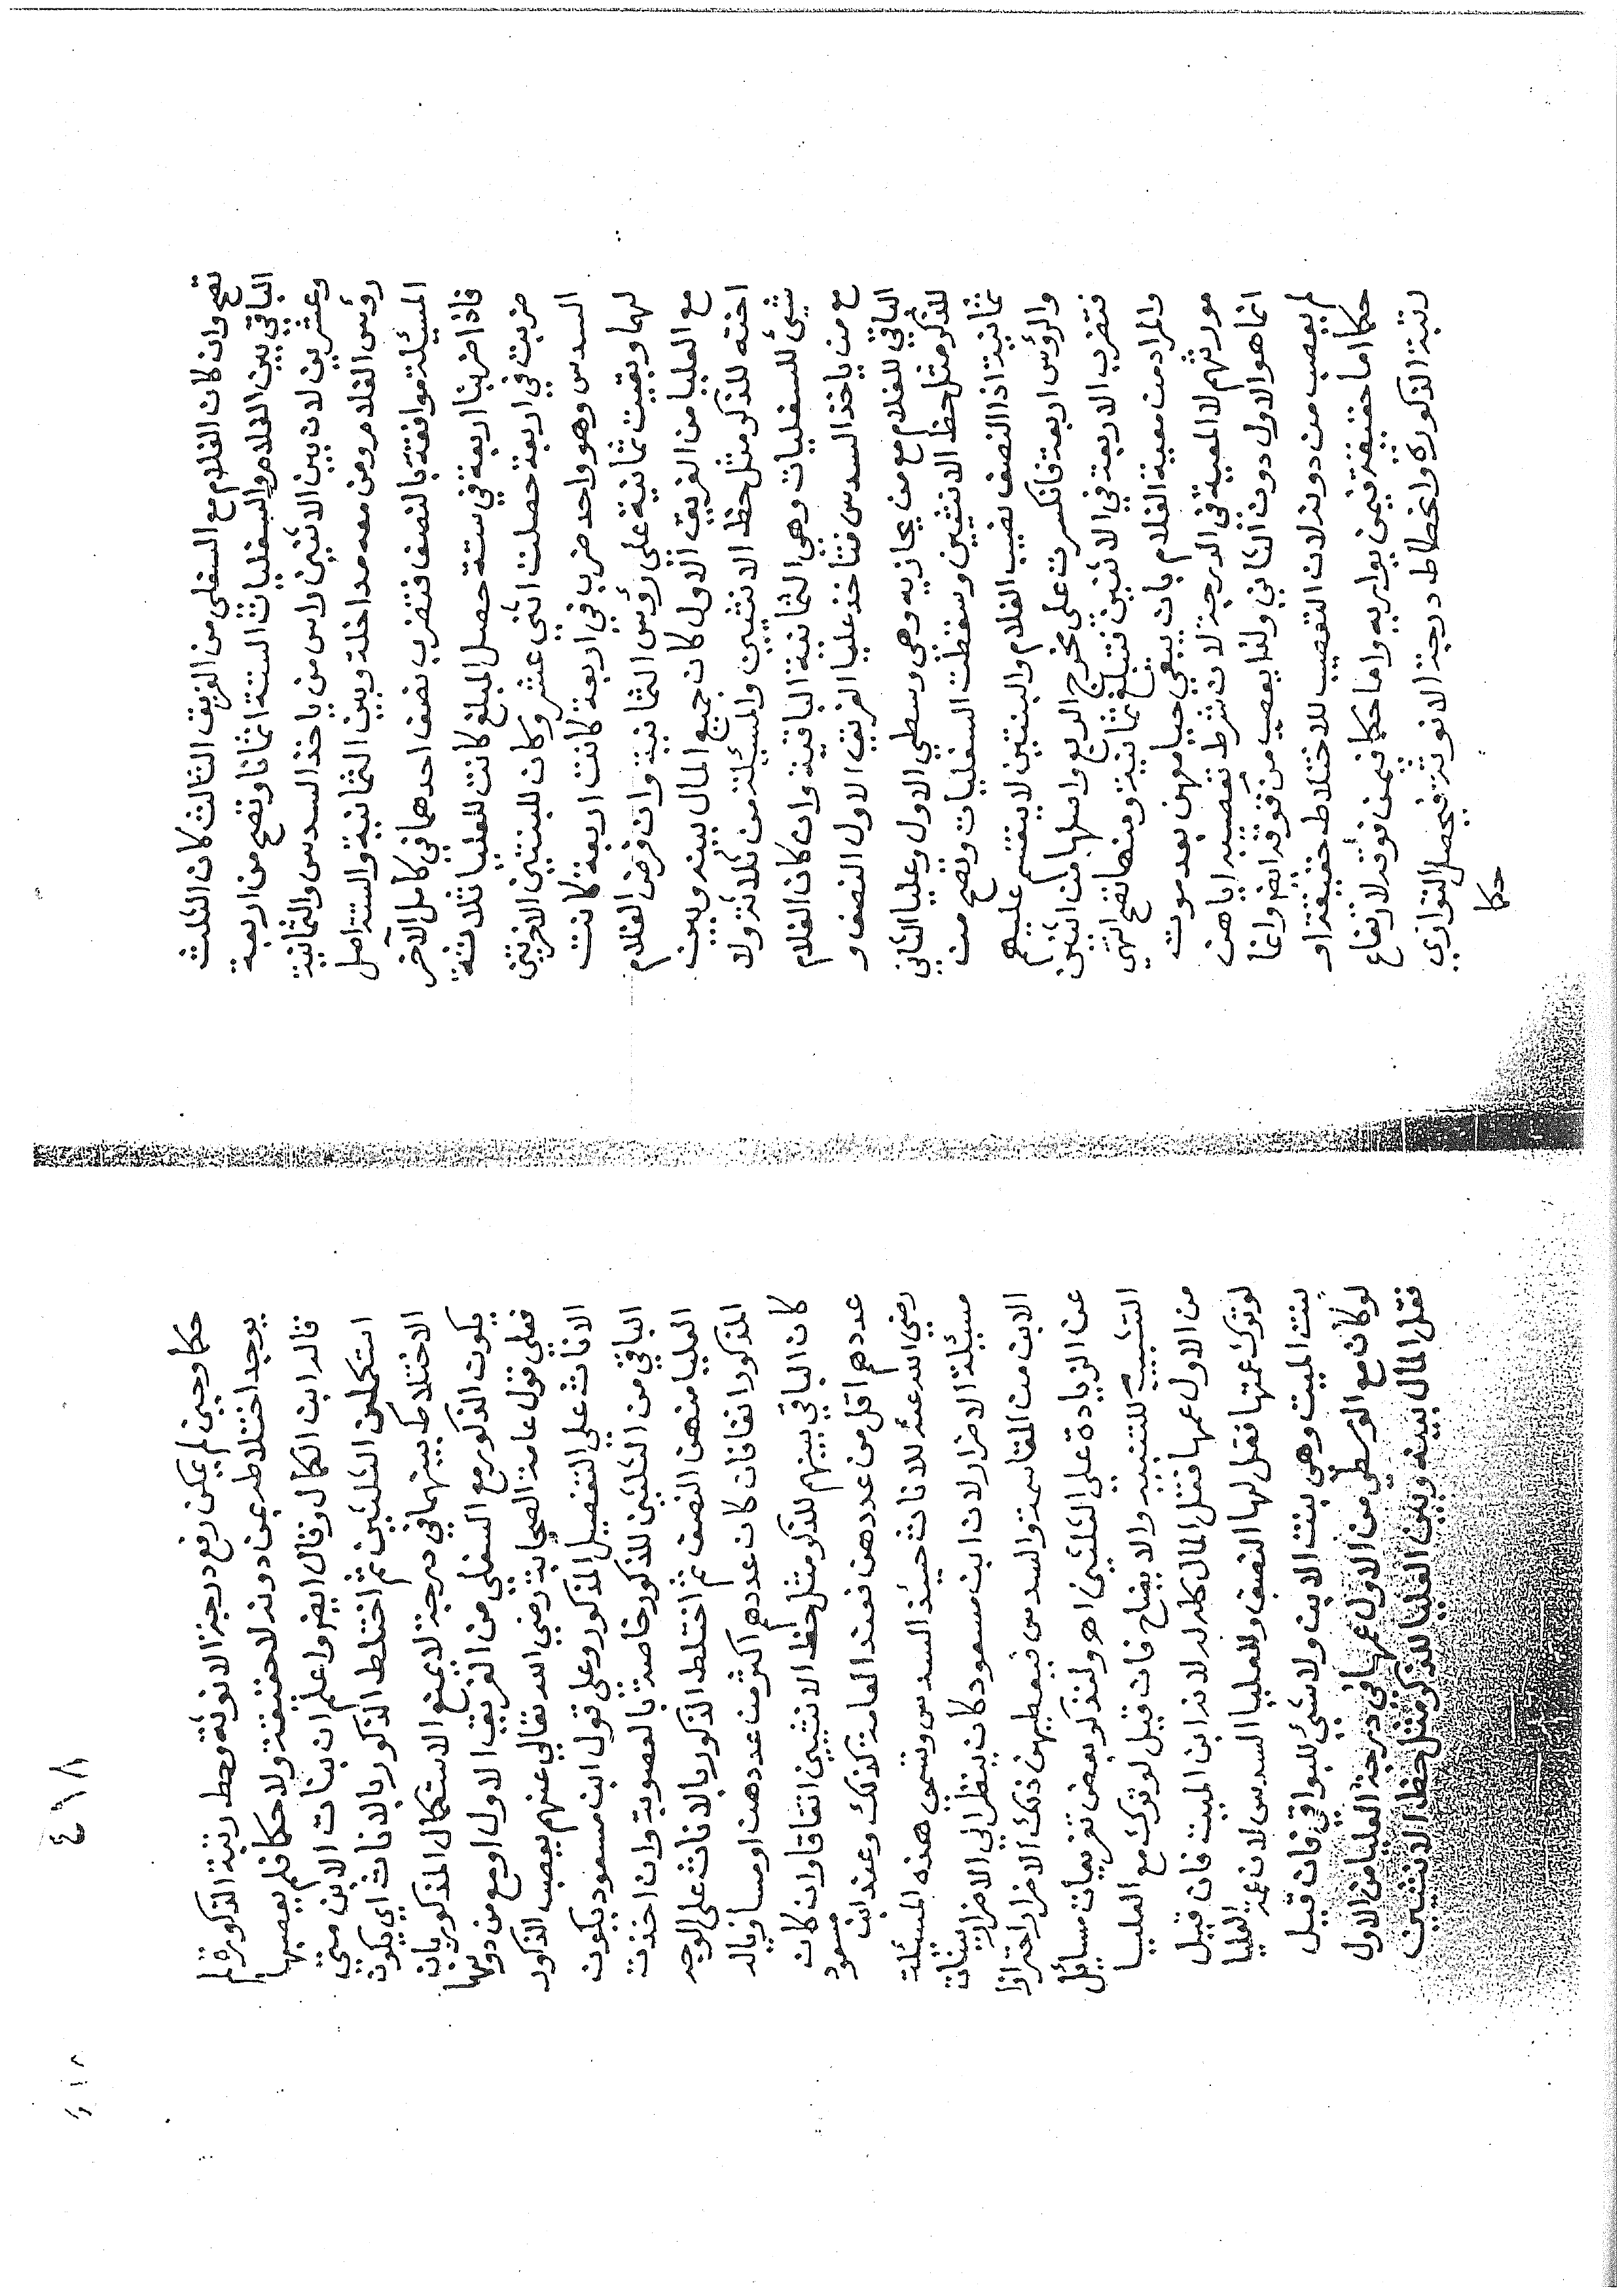 تصح وان كان الغلام مع السفلى من الفريق الثالث كان الثلث
الباقي بين الغلام والسفليات الستة اثمانا وتصح من اربعة
وعشرين لان بين الاثنين راس من ياخذ السدس والثمانية
رؤس الغلام ومن معه مداخلة وبين الثمانية والستة اصل
المسئلة موافقة بالنصف فتضرب نصف احدهما في كامل الآخر
فاذا ضربنا اربعة في ستة حصل المبلغ كانت للعليا ثلاثة
ضربت في اربعة حصلت اثني عشر وكان للبنتين الاخريتين
السدس وهو واحد ضرب في اربعة كانت اربعة كانت
لهما وبقيت ثمانية على رؤس الثمانية وان فرض الغلام
مع العليا من الفريق الاول كان جميع المال بينه وبين
اخته للذكر مثل حظ الانثيين والمسئلة من ثلاثة ولا
شيئ للسفليات وهي الثمانية الباقية وان كان الغلام
مع من ياخذ السدس فتاخذ عليا الفريق الاول النصف و
الباقي للغلام مع من يحاذيه وهي وسطي الاول وعليا الثاني
للذكر مثل حظ الانثيين وسقطت السفليات وتصح من
ثمانية اذا النصف نصيب الغلام والبنتين لا ينقسم عليهم
والرؤس اربعة فانكسرت على مخرج الربع واصلها من اثنين
فتضرب الاربعة في الاثنين فتبلغ ثمانية ومنها تصح انتهي
والمراد من معية الغلام بان يبقي حيا معهن بعد موت
مورثهم لا المعية في الدرجة لان شرط تعصيبه اياهن
انما هو الاول دون الثاني ولذا يعصب من فوقه ايضا وانما
لم يعصب من دونه لان التعصيب للاختلاط حقيقة او
حكما اما حقيقة فيمن يوازيه واما حكما فيمن فوقه لارتفاع
رتبة الذكورة وانحطاط درجة الانوثة فيحصل التوازي
حكما
٤٩٨
حكما وحين لم يمكن رفع درجة الانوثة وحط رتبة الذكورة لم
يوجد اختلاطه بمن دونه لا حقيقة ولا حكما فلم يعصبها
قاله ابن الكمال وقال ايضا واعلم ان بنات الابن متي
استكملن الثلثين ثم اختلط الذكور بالاناث اي يكون
الاختلاط بينهما في درجة لا يمنع الاستكمال المذكور بان
يكون الذكور مع السفلي من الفريق الاول او مع من دونها
فعلي قول عامة الصحابة رضي الله تعالي عنهم يعصب الذكور
الاناث علي التفصيل المذكور وعلي قول ابن مسعود يكون
الباقي من الثلثين للذكور خاصة بالعصوبة وان اخذت
العليا منهن النصف ثم اختلط الذكور بالاناث على الوجه
المذكور انفا فان كان عددهم اكثر من عددهن او مساويا له
كان الباقي بينهم للذكر مثل حظ الانثيين اتفاقا وان كان
عددهم اقل من عددهن فعند العامة كذلك وعند ابن مسعود
رضي الله عنه للاناث حينئذ السدس وتسمى هذه المسئلة
مسئلة الاضرار لان ابن مسعود كان ينظر الي الاضرار ببنات
الابن من المقاسمة والسدس فيعطيهن ذلك الاضرار احترازا
عن الزيادة على الثلثين اهـ ولنذكر بعض تفريعات مسائل
التشبيب للتنبيه والايضاح فان قيل لو ترك مع العليا
من الاول عمها فقل المال كله له لانه ابن الميت فان قيل
لو ترك عمتها فقل لها النصف وللعليا السدس لان عمة العليا
بنت الميت وهي بنت الابن ولا شئ للبواقي فان قيل
لو كان مع الوسطي من الاول عمها في درجة العليا من الاول
فقل المال بينه وبين العليا للذكر مثل حظ الانثيين